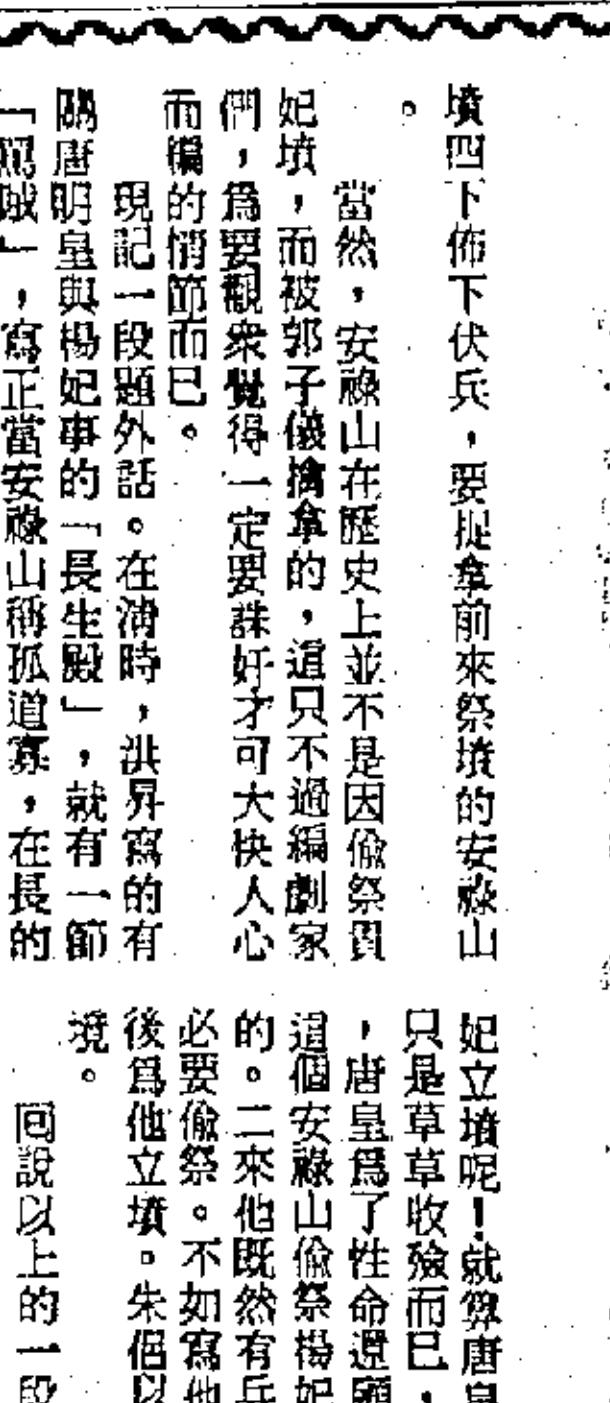 墳四下佈下伏兵，要捉拿前來祭墳的安祿山
。
當然，安祿山在歷史上並不是因偷祭貴
妃墳，而被郭子儀擒拿的，這只不過編劇家
們，爲要觀衆覺得一定要誅奸才可大快人心
而編的情節而已。
現記一段題外話。在清時，洪昇寫的有
關唐明皇與楊妃事的「長生殿」，就有一節
「罵賊」，寫正當安祿山稱孤道寡，在長的
妃立墳呢！就算唐皇
只是草草收殮而已，
，唐皇爲了性命還顧
這個安祿山偷祭楊妃
的。二來他既然有兵
必要偷祭。不如寫他
後爲他立墳。朱侶以
境。
回說以上的一段